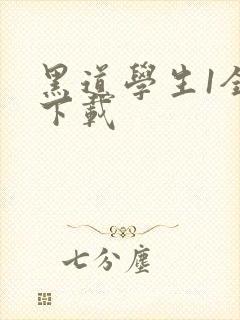 黑道學生1全
下載
七分塵